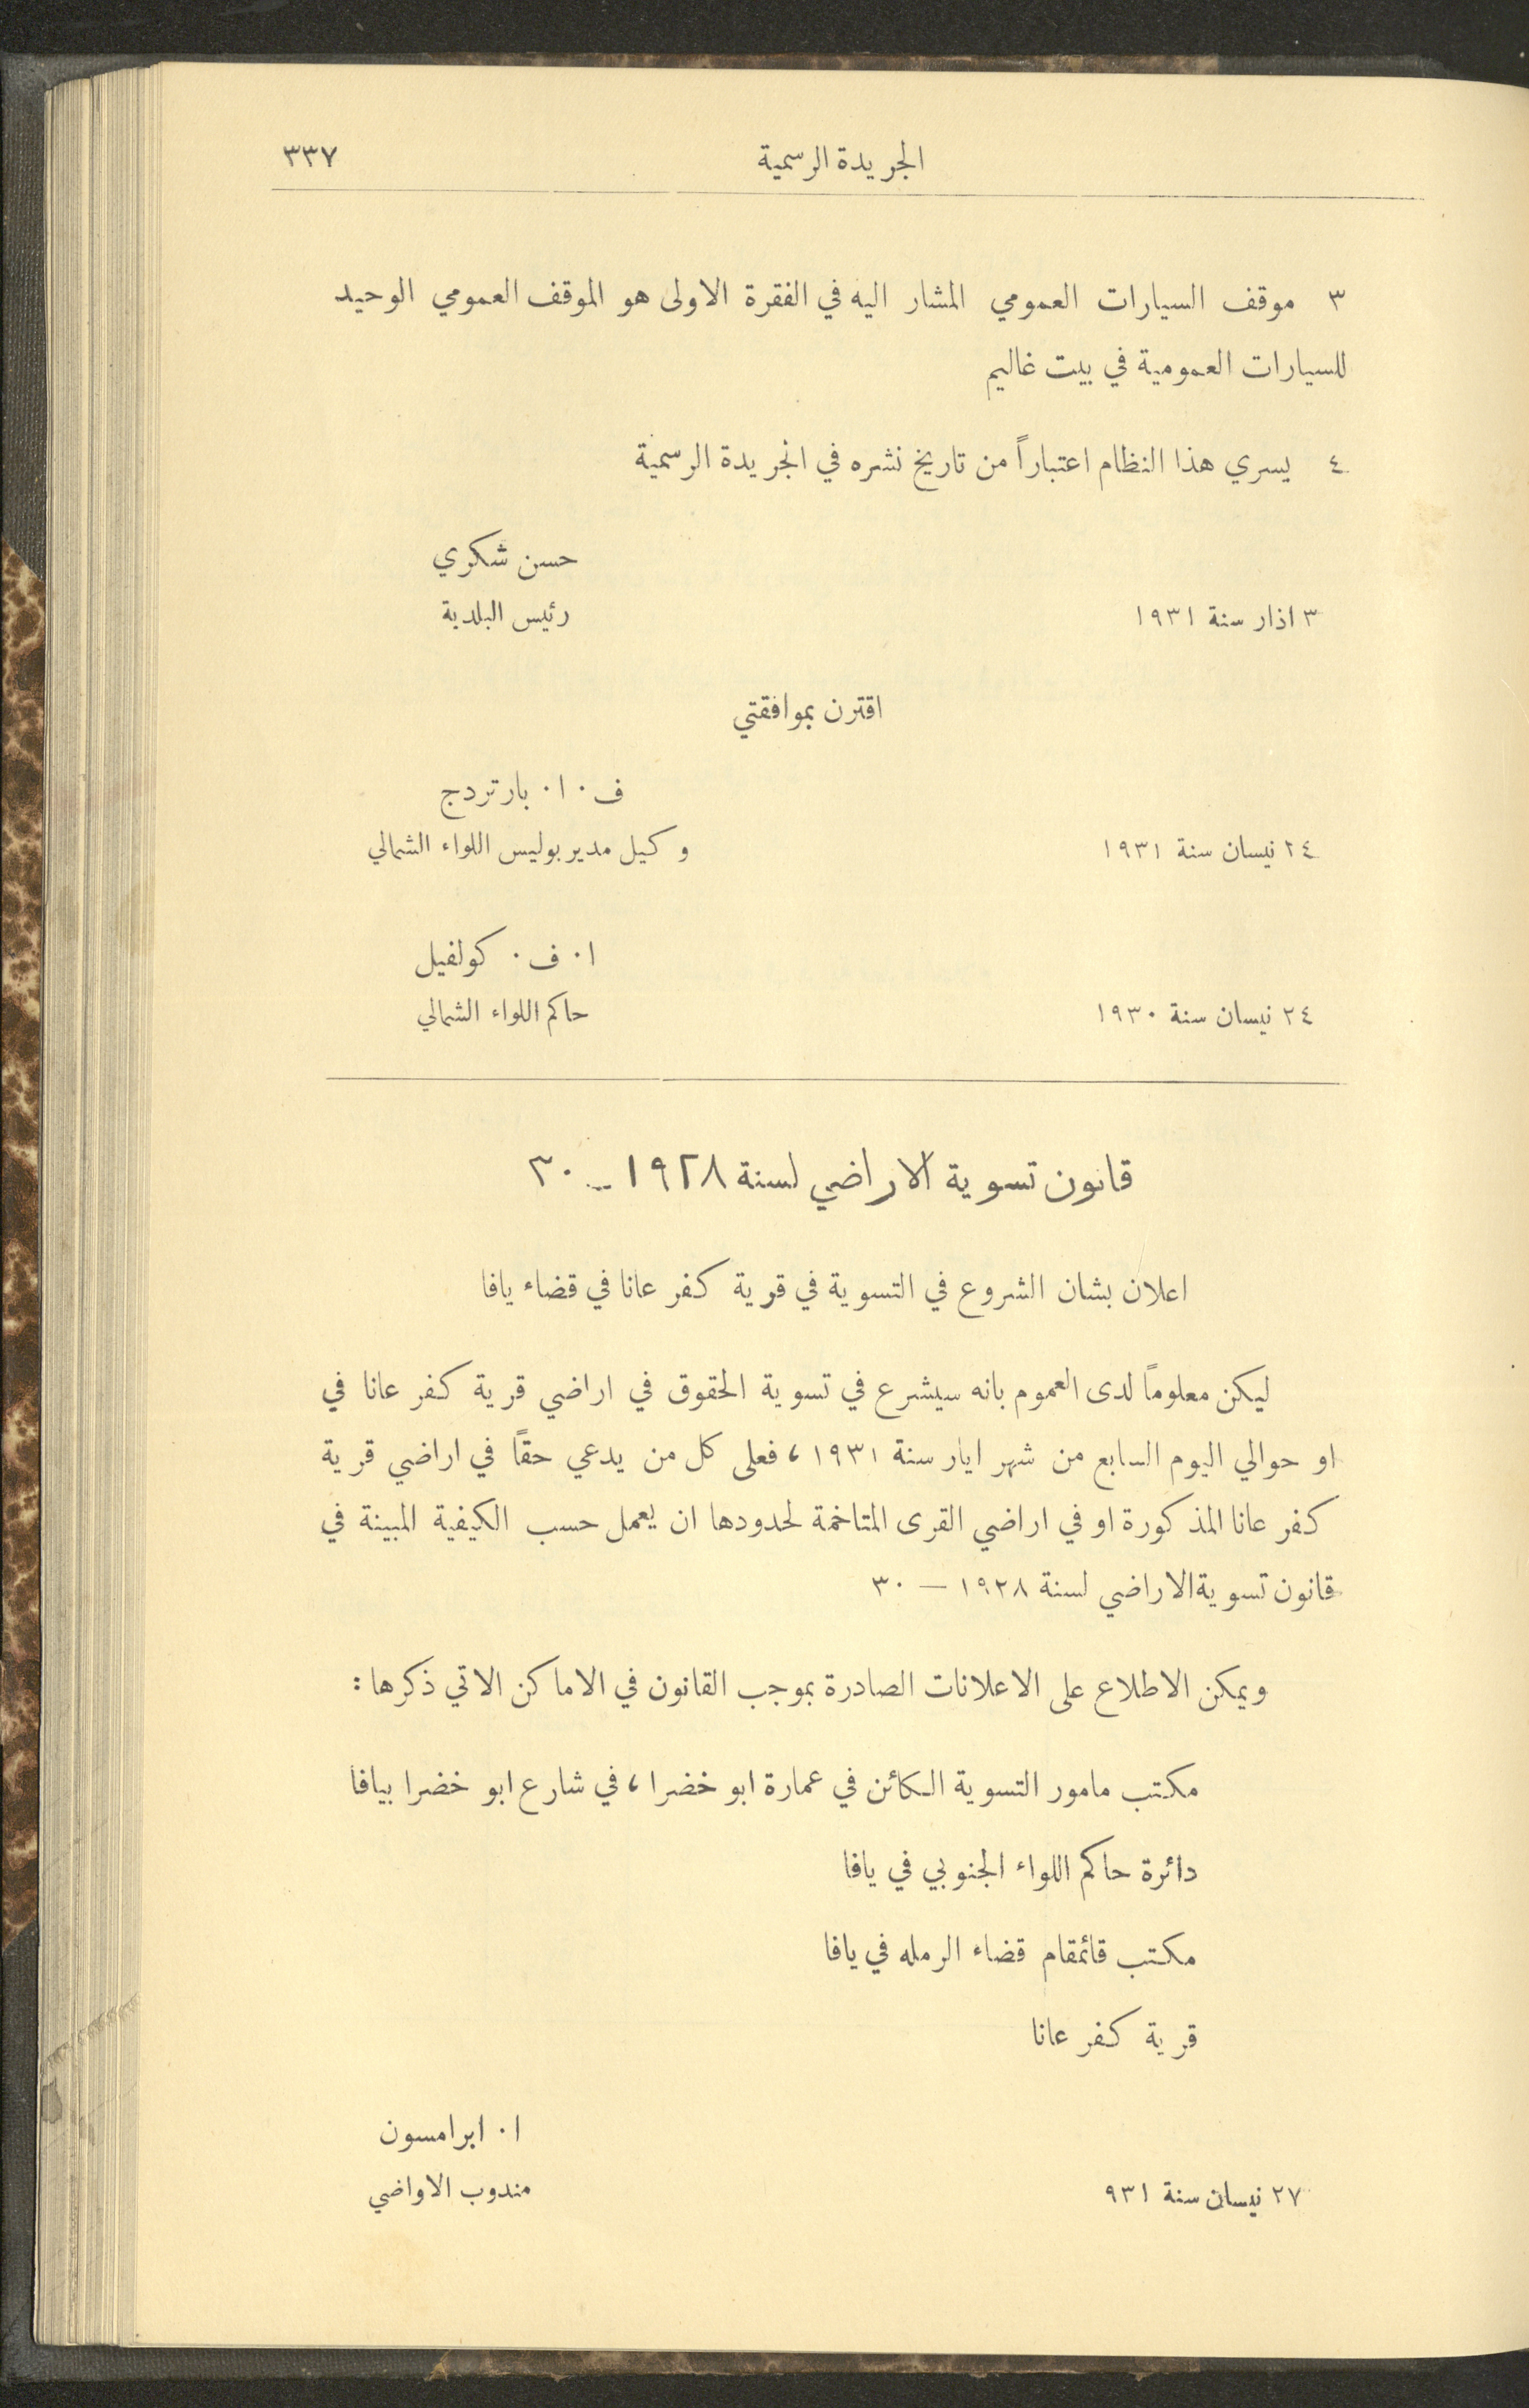 الجريدة الرسمية ٣٣٧
٣ موقف السيارات العمومي المشار اليه في الفقرة الاولى هو الموقف العمومي الوحيد
للسيارات العمومية في بيت غاليم
٤ يسري هذا النظام اعتباراً من تاريخ نشره في الجريدة الرسمية
حسن شكري
٣ اذار سنة ١٩٣١ رئيس البلدية
اقترن بموافقتي
ف ٠ ا ٠ بارتردج
٢٤ نيسان سنة ١٩٣١ وكيل مدير بوليس اللواء الشمالي
ا ٠ ف ٠ كولفيل
٢٤ نيسان سنة ١٩٣٠ حاكم اللواء الشمالي
قانون تسوية الاراضي لسنة ١٩٢٨ - ٣٠
اعلان بشان الشروع في التسوية في قرية كفر عانا في قضاء يافا
ليكن معلوماً لدى العموم بانه سيشرع في تسوية الحقوق في اراضي قرية كفر عانا في
او حوالي اليوم السابع من شهر ايار سنة ١٩٣١ ، فعلى كل من يدعي حقاً في اراضي قرية
كفر عانا المذكورة او في اراضي القرى المتاخمة لحدودها ان يعمل حسب الكيفية المبينة في
قانون تسوية الاراضي لسنة ١٩٢٨ — ٣٠
ويمكن الاطلاع على الاعلانات الصادرة بموجب القانون في الاماكن الاتي ذكرها :
مكتب مامور التسوية الكائن في عمارة ابو خضرا ، في شارع ابو خضرا بيافا
دائرة حاكم اللواء الجنوبي في يافا
مكتب قائمقام قضاء الرمله في يافا
قرية كفر عانا
ا ٠ ابرامسون
٢٧ نيسان سنة ٩٣١ مندوب الاواضي